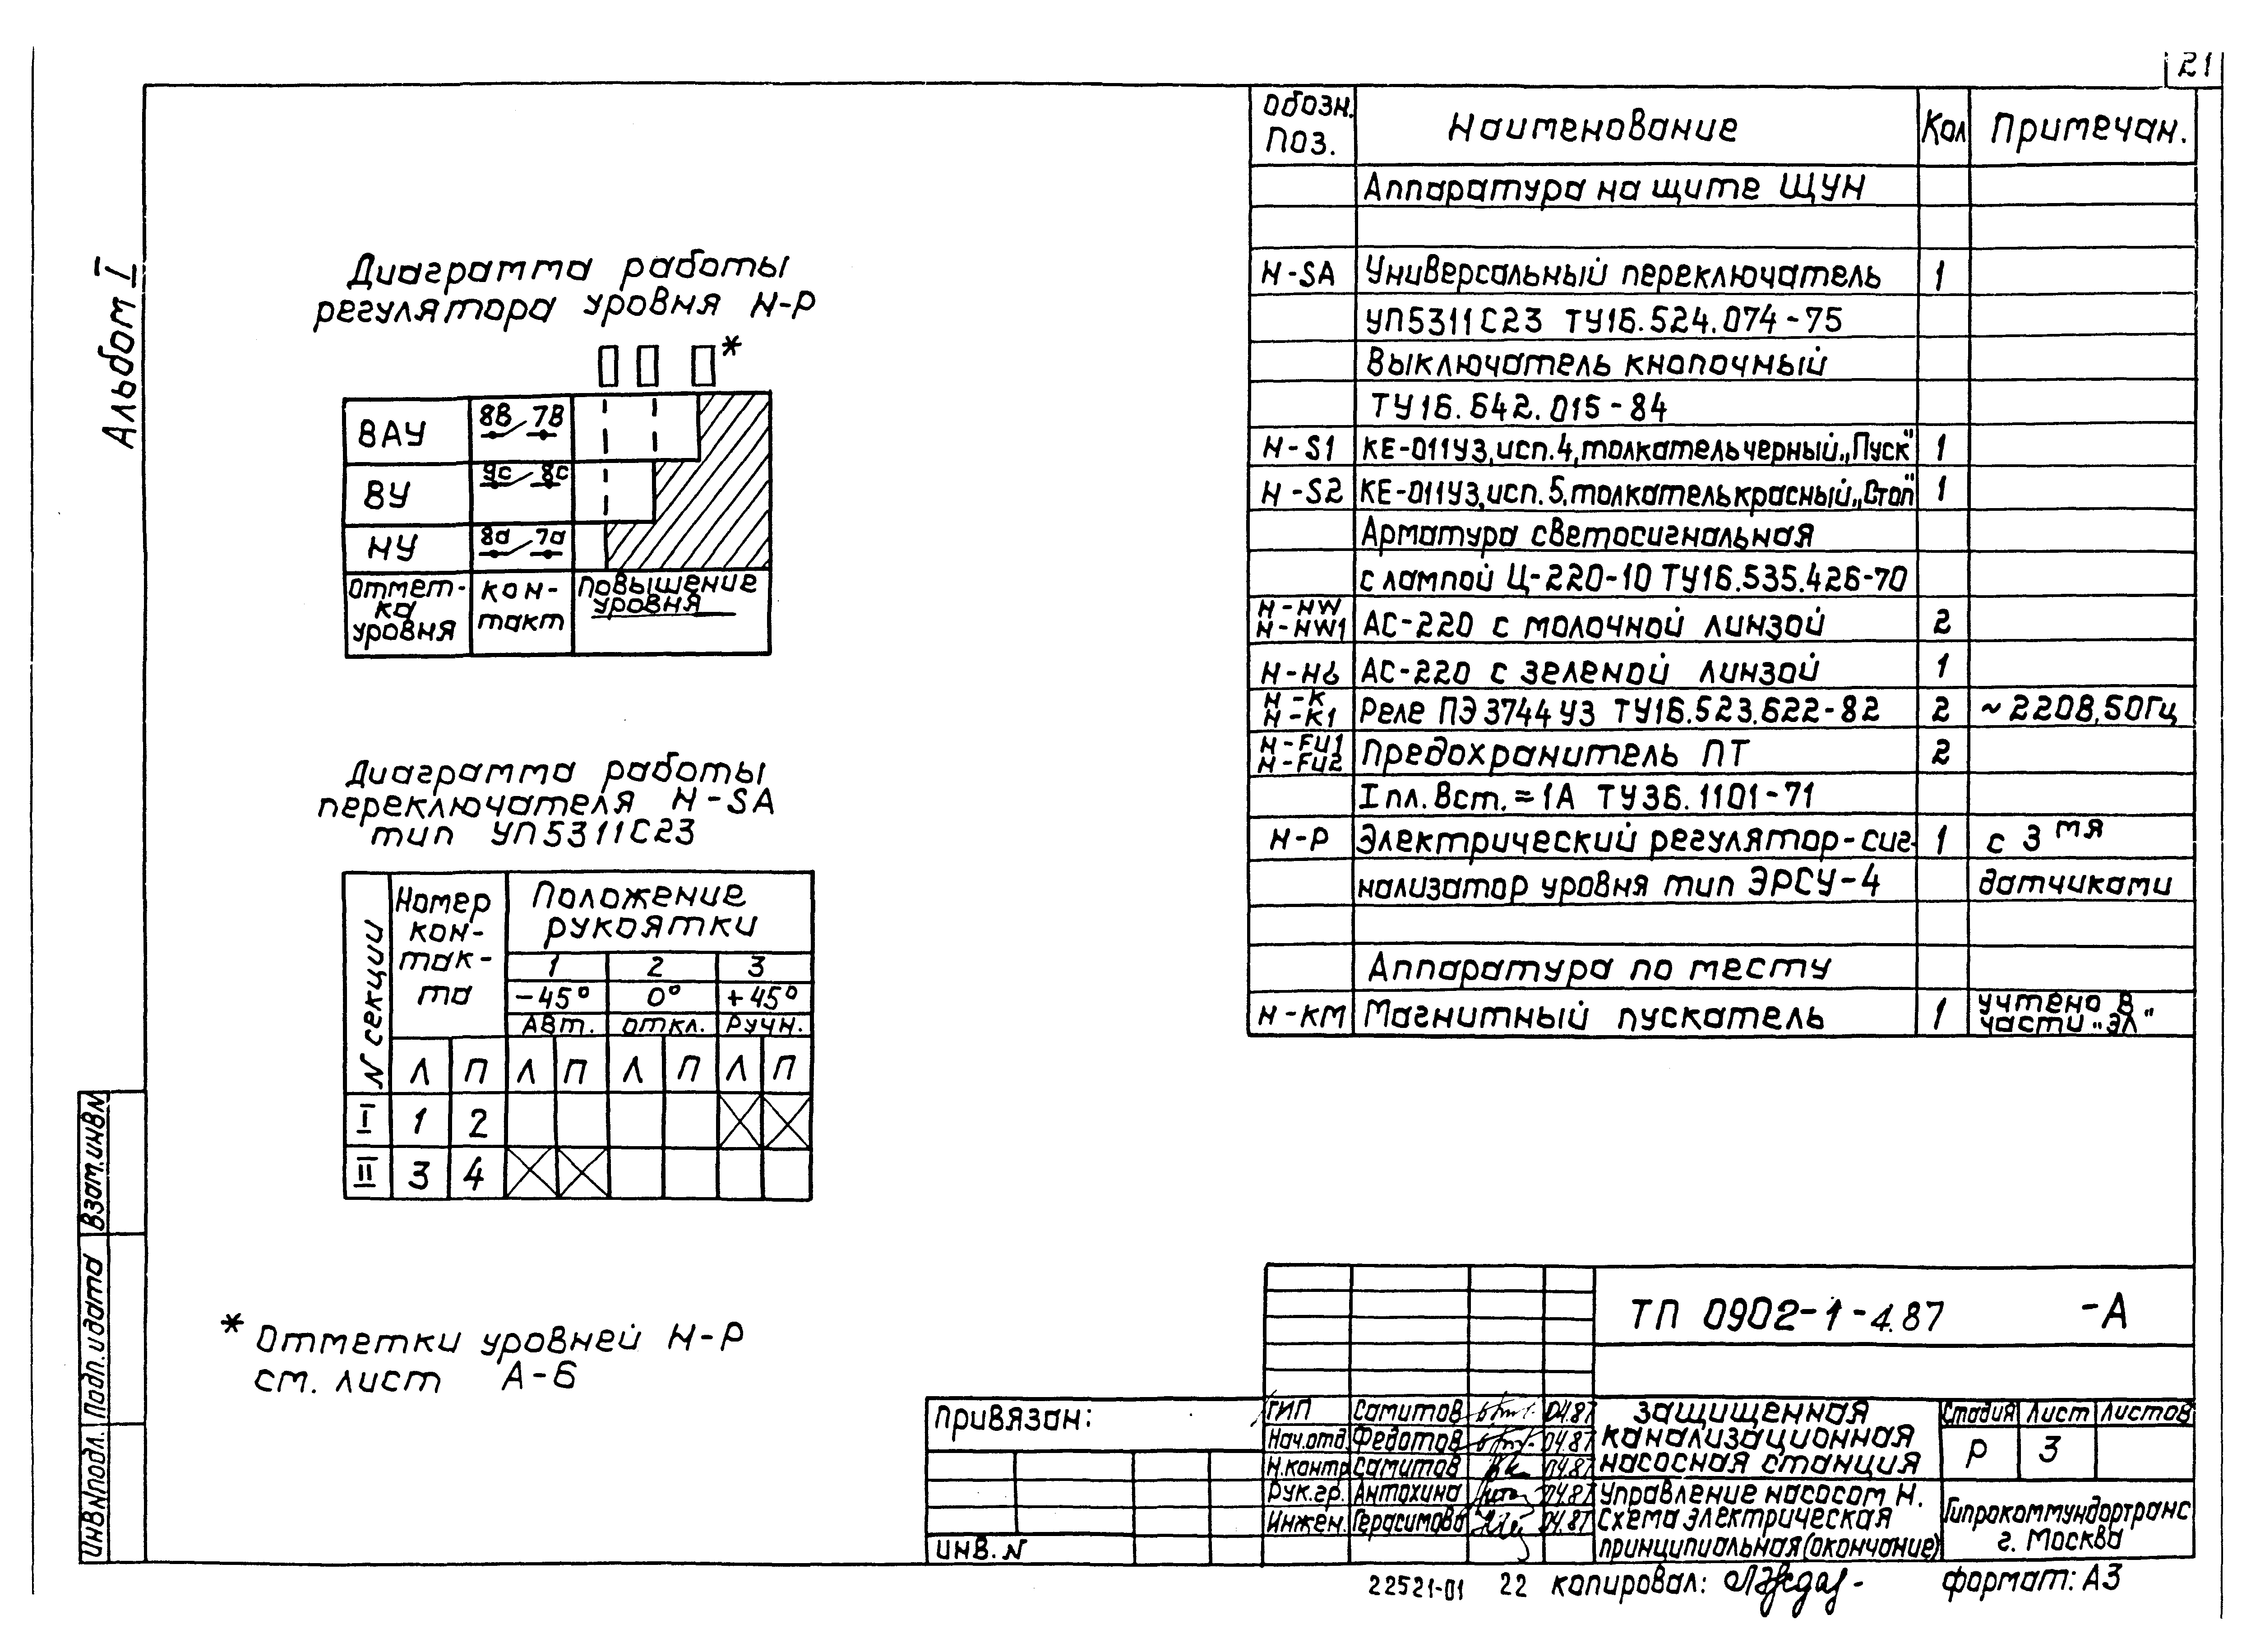 21
Альбом I
Диаграмма работы
регулятора уровня Н-Р
*
ВАУ 8В 7В
ВУ 9с 8с
НУ 8а 7а
Отмет-
ка
уровня
кон-
такт
Повышение
уровня
Диаграмма работы
переключателя Н-SA
тип УП5311С23
N секции
Номер
кон-
так-
та
Положение
рукоятки
1 2 3
-45° 0° +45°
Авт. откл. Ручн.
Л П Л П Л П Л П
I 1 2
II 3 4
* Отметки уровней Н-Р
см. лист А-6
Обозн.
поз. Наименование Кол Примечан.
Аппаратура на щите ЩУН
Н-SA Универсальный переключатель 1
УП5311С23 ТУ16.524.074-75
Выключатель кнопочный
ТУ16.642.015-84
Н-S1 КЕ-011У3,исп.4,толкатель черный„Пуск" 1
Н-S2 КЕ-011У3,исп.5,толкатель красный„Стоп" 1
Арматура светосигнальная
с лампой Ц-220-10 ТУ16.535.426-70
Н-HW
Н-HW1 АС-220 с молочной линзой 2
Н-HG АС-220 с зеленой линзой 1
Н-К
Н-К1 Реле ПЭ3744У3 ТУ16.523.622-82 2 ~220В,50Гц
Н-FU1
Н-FU2 Предохранитель ПТ 2
Iпл.Вст.=1А ТУ36.1101-71
Н-Р Электрический регулятор-сиг- 1 с 3мя
нализатор уровня тип ЭРСУ-4 датчиками
Аппаратура по месту
Н-КМ Магнитный пускатель 1 учтено в
части „ЭЛ"
ТП 0902-1-4.87 -А
Привязан:
ИНВ. N
ГИП Самитов 04.87
Нач.отд. Федотов 04.87
Н.контр Самитов 04.87
Рук.гр. Антохина 04.87
Инжен. Герасимова 04.87
Защищенная
канализационная
насосная станция
Стадия Лист Листов
Р 3
Управление насосом Н.
Схема электрическая
принципиальная (окончание)
Гипрокоммундортранс
г. Москва
22521-01 22 копировал: формат: А3
Инв.Nподл. Подп.и дата Взам.инв.N